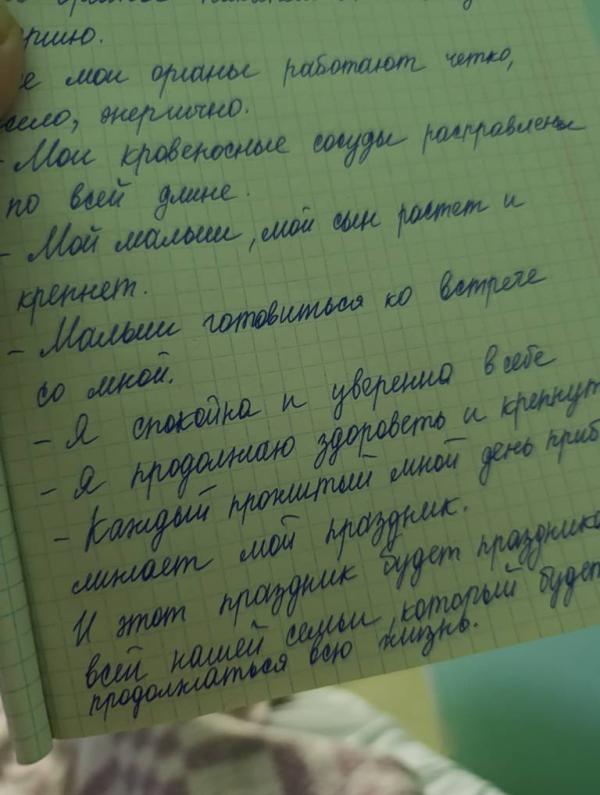 ергию.
е мои органы работают четко,
село, энергично.
- Мои кровеносные сосуды расправлены
по всей длине.
- Мой малыш, мой сын растет и
крепнет.
- Малыш готовиться ко встрече
со мной.
- Я спокойна и уверенна в себе
- Я продолжаю здороветь и крепнут
- Каждый прожитый мной день приб
лижает мой праздник.
И этот праздник будет праздника
всей нашей семьи, который будет
продолжаться всю жизнь.